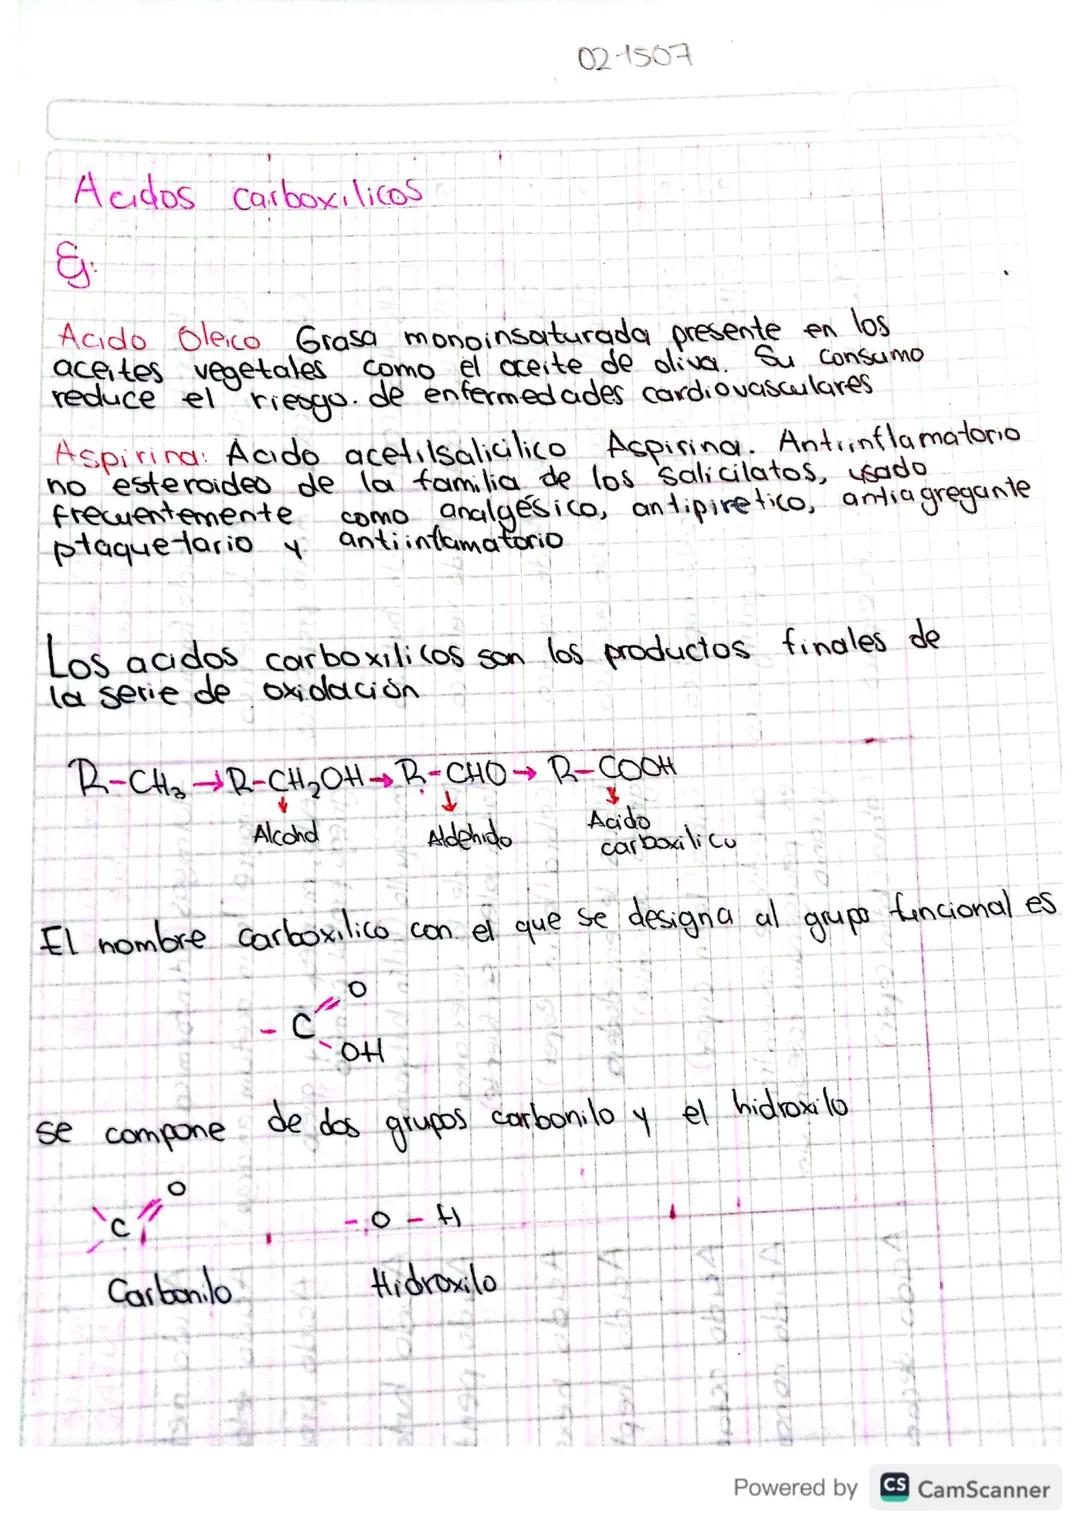 02-1507
Acidos carboxilicos
Ej:
Acido Oleico Grasa monoinsaturada presente en los
aceites vegetales como el aceite de oliva. Su consumo
reduce el riesgo. de enfermedades cardiovasculares
Aspirina: Acido acetilsalicilico Aspirina. Antiinflamatorio
no esteroideo de la familia de los salicilatos, usado
frecuentemente como analgésico, antipiretico, antiagregante
plaquetario y antiinflamatorio
Los acidos carboxilicos son los productos finales de
la serie de oxidación
R-CH₃ → R-CH₂OH → R-CHO → R-COOH
Alcohol Aldehido Acido
carboxilico
El nombre carboxilico con el que se designa al grupo funcional es
O
- C
OH
se compone de dos grupos carbonilo y el hidroxilo
O
C - O - H
Carbonilo Hidroxilo
Powered by CS CamScanner